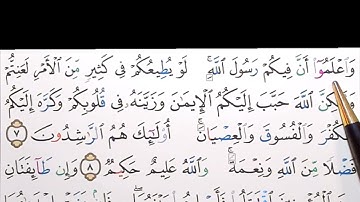 وَاعْلَمُوٓا أَنَّ فِيكُمْ رَسُولَ اللَّهِ ۚ لَوْ يُطِيعُكُمْ فِى كَثِيرٍ مِّنَ الْأَمْرِ لَعَنِتُّمْ
وَلَٰكِنَّ اللَّهَ حَبَّبَ إِلَيْكُمُ الْإِيمَٰنَ وَزَيَّنَهُۥ فِى قُلُوبِكُمْ وَكَرَّهَ إِلَيْكُمُ
الْكُفْرَ وَالْفُسُوقَ وَالْعِصْيَانَ ۚ أُولَٰٓئِكَ هُمُ الرَّٰشِدُونَ ٧
فَضْلًا مِّنَ اللَّهِ وَنِعْمَةً ۚ وَاللَّهُ عَلِيمٌ حَكِيمٌ ٨ وَإِن طَآئِفَتَانِ